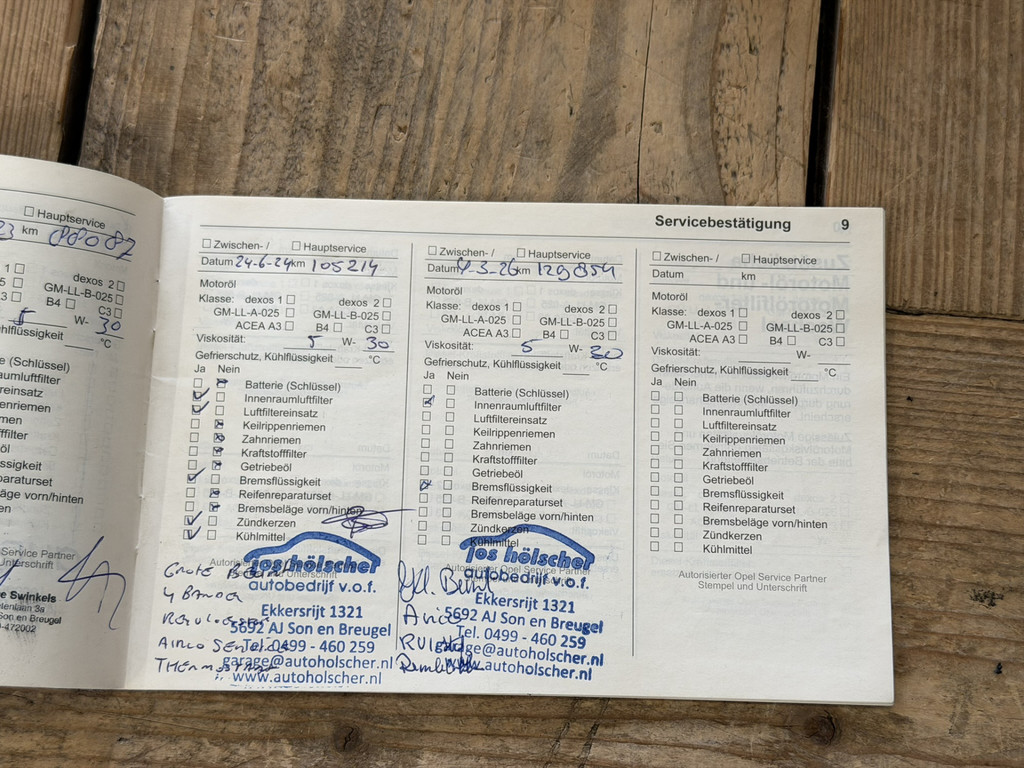 Hauptservice
23 km 88087
1
dexos 2
5
GM-LL-B-025
3
B4
C3
5
W- 30
hlflüssigkeit
°C
e (Schlüssel)
aumluftfilter
reinsatz
enriemen
men
ffilter
öl
üssigkeit
reparaturset
eläge vorn/hinten
en
Service Partner
Unterschrift
e Swinkels
Son en Breugel
-472002
Servicebestätigung 9
Zwischen- / Hauptservice
Datum 24-6-24 km 105214
Motoröl
Klasse: dexos 1 dexos 2
GM-LL-A-025 GM-LL-B-025
ACEA A3 B4 C3
Viskosität: 5 W- 30
Gefrierschutz, Kühlflüssigkeit °C
Ja Nein
Batterie (Schlüssel)
Innenraumluftfilter
Luftfiltereinsatz
Keilrippenriemen
Zahnriemen
Kraftstofffilter
Getriebeöl
Bremsflüssigkeit
Reifenreparaturset
Bremsbeläge vorn/hinten
Zündkerzen
Kühlmittel
jos hölscher
autobedrijf v.o.f.
Ekkersrijt 1321
5692 AJ Son en Breugel
Tel. 0499 - 460 259
garage@autoholscher.nl
www.autoholscher.nl
Grote Beurt
Airco
Zwischen- / Hauptservice
Datum 4-3-26 km 129854
Motoröl
Klasse: dexos 1 dexos 2
GM-LL-A-025 GM-LL-B-025
ACEA A3 B4 C3
Viskosität: 5 W- 30
Gefrierschutz, Kühlflüssigkeit °C
Ja Nein
Batterie (Schlüssel)
Innenraumluftfilter
Luftfiltereinsatz
Keilrippenriemen
Zahnriemen
Kraftstofffilter
Getriebeöl
Bremsflüssigkeit
Reifenreparaturset
Bremsbeläge vorn/hinten
Zündkerzen
Kühlmittel
jos hölscher
autobedrijf v.o.f.
Ekkersrijt 1321
5692 AJ Son en Breugel
Tel. 0499 - 460 259
garage@autoholscher.nl
www.autoholscher.nl
Beurt
Airco
Zwischen- / Hauptservice
Datum km
Motoröl
Klasse: dexos 1 dexos 2
GM-LL-A-025 GM-LL-B-025
ACEA A3 B4 C3
Viskosität: W-
Gefrierschutz, Kühlflüssigkeit °C
Ja Nein
Batterie (Schlüssel)
Innenraumluftfilter
Luftfiltereinsatz
Keilrippenriemen
Zahnriemen
Kraftstofffilter
Getriebeöl
Bremsflüssigkeit
Reifenreparaturset
Bremsbeläge vorn/hinten
Zündkerzen
Kühlmittel
Autorisierter Opel Service Partner
Stempel und Unterschrift